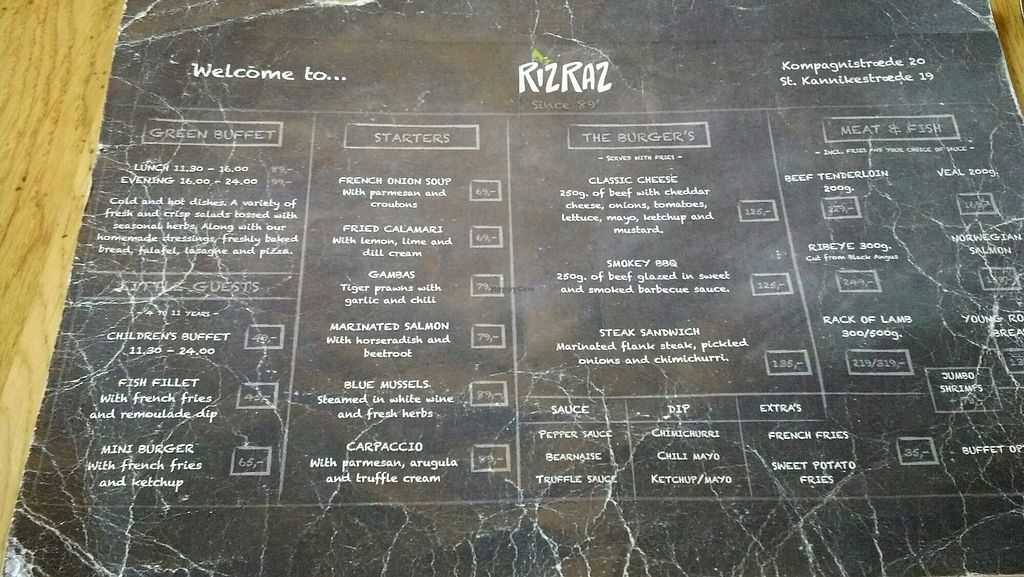 Welcome to...
RIZRAZ
Since 89'
Kompagnistræde 20
St. Kannikestræde 19
GREEN BUFFET
LUNCH 11.30 - 16.00 89,-
EVENING 16.00 - 24.00 99,-
Cold and hot dishes. A variety of
fresh and crisp salads tossed with
seasonal herbs. Along with our
homemade dressings, freshly baked
bread, falafel, lasagne and pizza.
LITTLE GUESTS
- 4 TO 11 YEARS -
CHILDREN'S BUFFET
11.30 - 24.00
FISH FILLET
With french fries 45,-
and remoulade dip
MINI BURGER
With french fries 65,-
and ketchup
STARTERS
FRENCH ONION SOUP
With parmesan and 69,-
croutons
FRIED CALAMARI
With lemon, lime and 69,-
dill cream
GAMBAS
Tiger prawns with 79,-
garlic and chili
MARINATED SALMON
With horseradish and 79,-
beetroot
BLUE MUSSELS
Steamed in white wine 89,-
and fresh herbs
CARPACCIO
With parmesan, arugula 89,-
and truffle cream
HappyCow
THE BURGER'S
- SERVED WITH FRIES -
CLASSIC CHEESE
250g. of beef with cheddar
cheese, onions, tomatoes,
lettuce, mayo, ketchup and 125,-
mustard.
SMOKEY BBQ
250g. of beef glazed in sweet
and smoked barbecue sauce. 125,-
STEAK SANDWICH
Marinated flank steak, pickled
onions and chimichurri. 135,-
MEAT & FISH
- INCL. FRIES AND YOUR CHOICE OF SAUCE -
BEEF TENDERLOIN
200g.
229,-
VEAL 200g.
169,-
RIBEYE 300g.
Cut from Black Angus
249,-
NORWEGIAN
SALMON
RACK OF LAMB
300/500g.
219/319,-
YOUNG
JUMBO
SHRIMPS
SAUCE DIP EXTRA'S
PEPPER SAUCE CHIMICHURRI FRENCH FRIES
BEARNAISE CHILI MAYO 35,-
TRUFFLE SAUCE KETCHUP/MAYO SWEET POTATO
FRIES
BUFFET